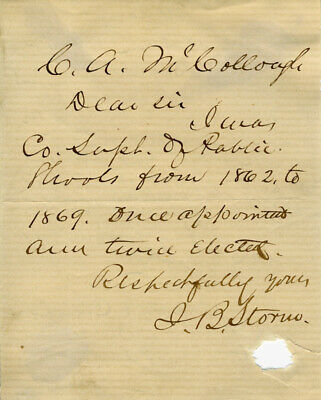 C. A. McCollough
Dear sir
I was
Co. Supt. of Public
Schools from 1862, to
1869. Once appointed
ann twice elected.
Respectfully yours
J. B. Storm.